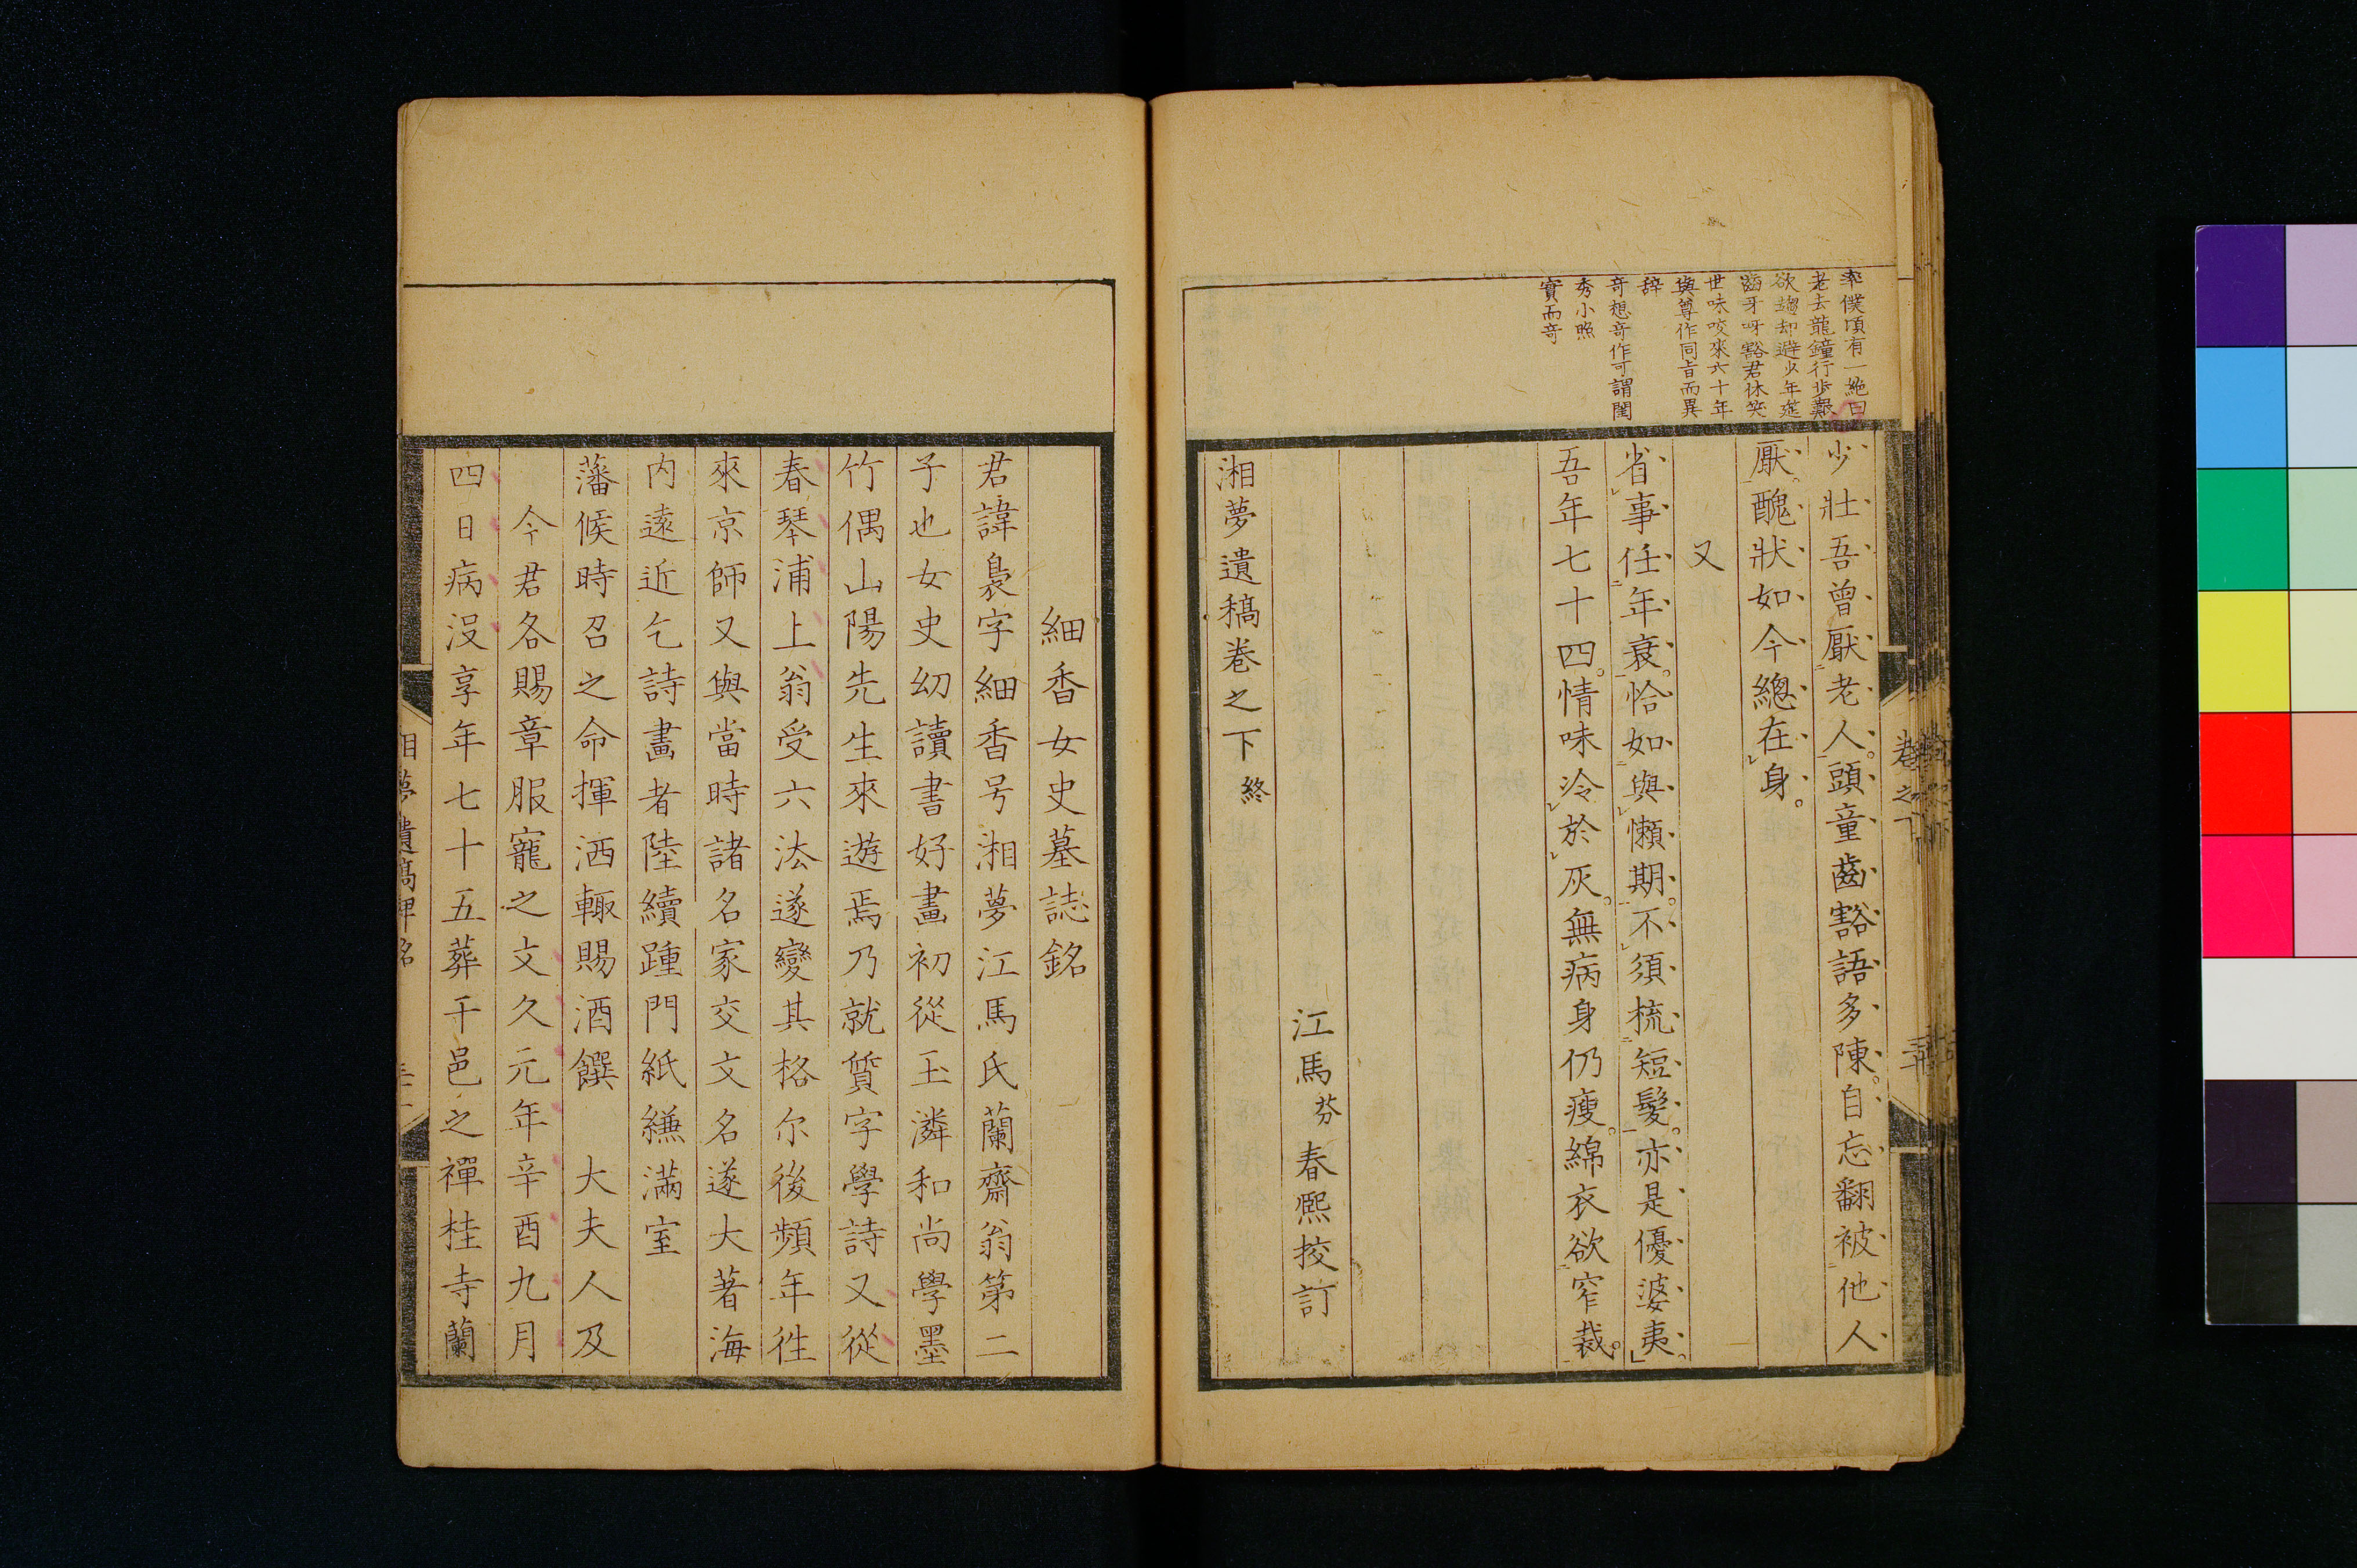 率僕頃有一絶曰
老去龍鐘行歩艱
欲趨却避少年莚
齒牙呀豁君休笑
世味咬來六十年
與尊作同旨而異
辞
奇想奇作可謂閨
秀小照
實而奇
少壯吾曾厭老人。頭童齒豁語多陳。自忘翻被他人
厭。醜狀如今總在身。
又
省事任年衰。恰如與懶期。不須梳短髮。亦是優婆夷。
吾年七十四。情味冷於灰。無病身仍瘦。綿衣欲窄裁。
江馬芬春熈挍訂
湘夢遺稿卷之下終
卷之下
細香女史墓誌銘
君諱裊字細香号湘夢江馬氏蘭齋翁第二
子也女史幼讀書好畫初從玉潾和尚學墨
竹偶山陽先生來遊焉乃就質字學詩又從
春琴浦上翁受六法遂變其格尔後頻年徃
來京師又與當時諸名家交文名遂大著海
内遠近乞詩畫者陸續踵門紙縑滿室
藩候時召之命揮洒輙賜酒饌　大夫人及
今君各賜章服寵之文久元年辛酉九月
四日病没享年七十五葬于邑之禪桂寺蘭
湘夢遺稿碑銘